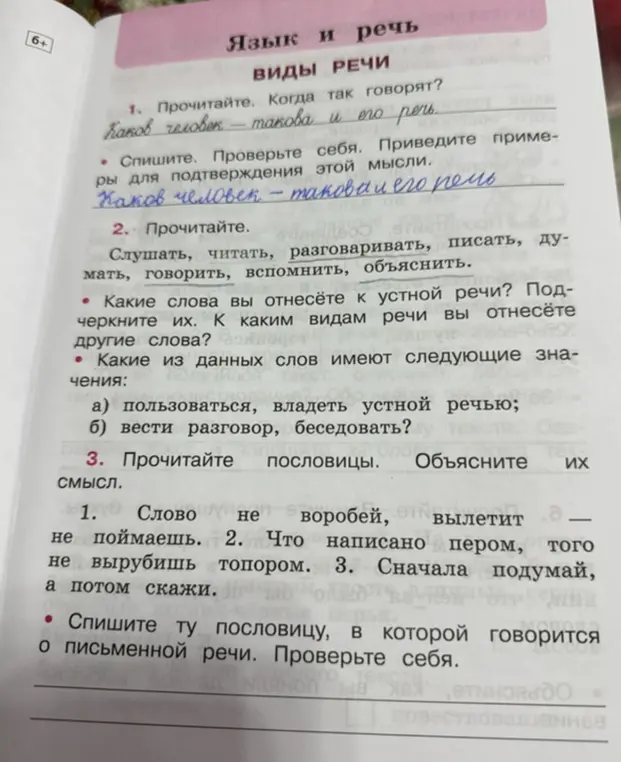 6+
Язык и речь
ВИДЫ РЕЧИ
1. Прочитайте. Когда так говорят?
Каков человек – такова и его речь.
• Спишите. Проверьте себя. Приведите приме-
ры для подтверждения этой мысли.
Каков человек – такова и его речь
2. Прочитайте.
Слушать, читать, разговаривать, писать, ду-
мать, говорить, вспомнить, объяснить.
• Какие слова вы отнесёте к устной речи? Под-
черкните их. К каким видам речи вы отнесёте
другие слова?
• Какие из данных слов имеют следующие зна-
чения:
а) пользоваться, владеть устной речью;
б) вести разговор, беседовать?
3. Прочитайте пословицы. Объясните их
смысл.
1. Слово не воробей, вылетит —
не поймаешь. 2. Что написано пером, того
не вырубишь топором. 3. Сначала подумай,
а потом скажи.
• Спишите ту пословицу, в которой говорится
о письменной речи. Проверьте себя.